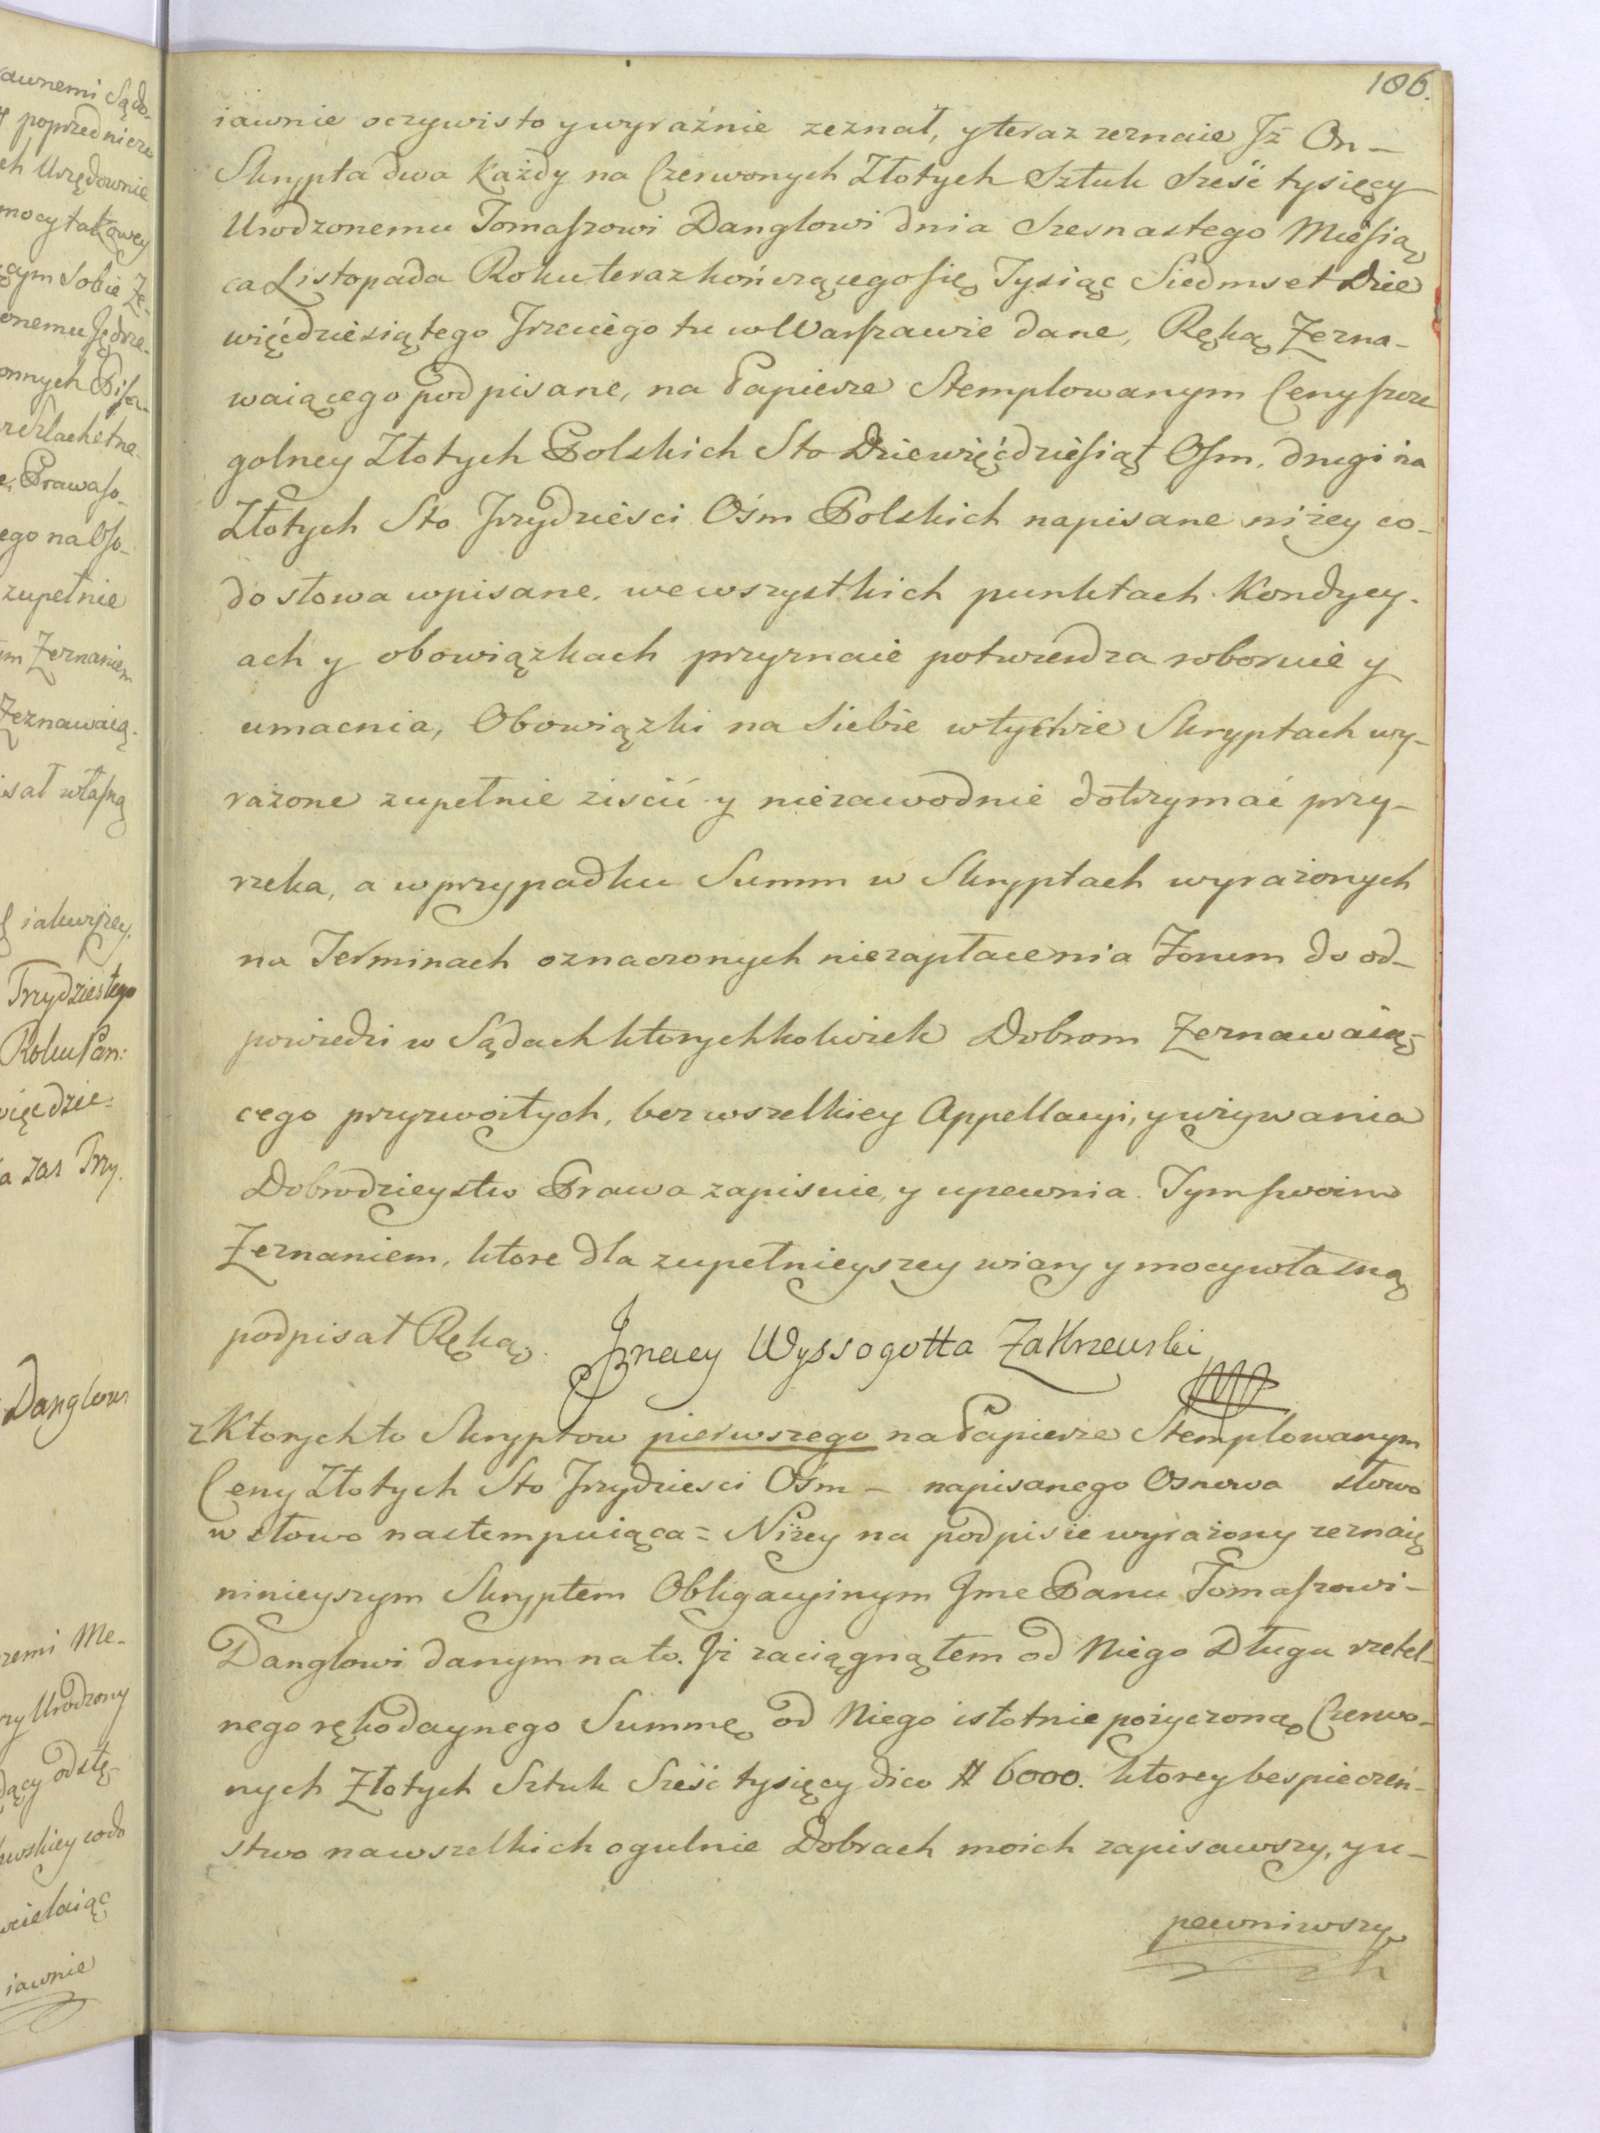 106.
iawnie oczywisto y wyraźnie zeznał, y teraz zeznaie Jż On —
Skrypta dwa Każdy na Czerwonych Złotych Sztuk Sześć tysięcy
Urodzonemu Tomaszowi Danglowi dnia Szesnastego Miesią
ca Listopada Roku teraz kończącego się Tysiąc Siedmset Dzie
więćdziesiątego Trzeciego tu w Warszawie dane, Ręką Zezna-
waiącego podpisane, na Papierze Stemplowanym Ceny szcze
golney Złotych Polskich Sto Dziewięćdziesiąt Osm, drugi na
Złotych Sto Trzydzieści Ośm Polskich napisane niżey co-
do słowa wpisane, we wszystkich punktach Kondycy-
ach y obowiązkach przyznaie potwierdza roboruie y
umacnia, Obowiązki na siebie w tychże Skryptach wy-
rażone zupełnie ziścić y niezawodnie dotrzymać przy-
rzeka, a w przypadku Summ w Skryptach wyrażonych
na Terminach oznaczonych niezapłacenia Forum do od-
powiedzi w Sądach ktorychkolwiek Dobrom Zeznawaią-
cego przyzwoitych, bez wszelkiey Appellacyi, y używania
Dobrodzieystw Prawa zapisuie, y upewnia. Tym swoim
Zeznaniem, ktore dla zupełnieyszey wiary y mocy własną
podpisał Ręką. Jgnacy Wyssogotta Zakrzewski
z Ktorych to Skryptow pierwszego na Papierze Stemplowanym
Ceny Złotych Sto Trzydzieści Ośm — napisanego Osnowa słowo
w słowo nastempuiąca = Niżey na podpisie wyrażony zeznaię
ninieyszym Skryptem Obligacyinym Jme Panu Tomaszowi —
Danglowi danym na to. Jż zaciągnąłem od Niego Długu rzetel-
nego rękodaynego Summę od Niego istotnie pożyczoną Czerwo-
nych Złotych Sztuk Sześć tysięcy dico # 6000. ktorey bespieczeń-
stwo na wszelkich ogulnie Dobrach moich zapisawszy, y u-
pewniwszy